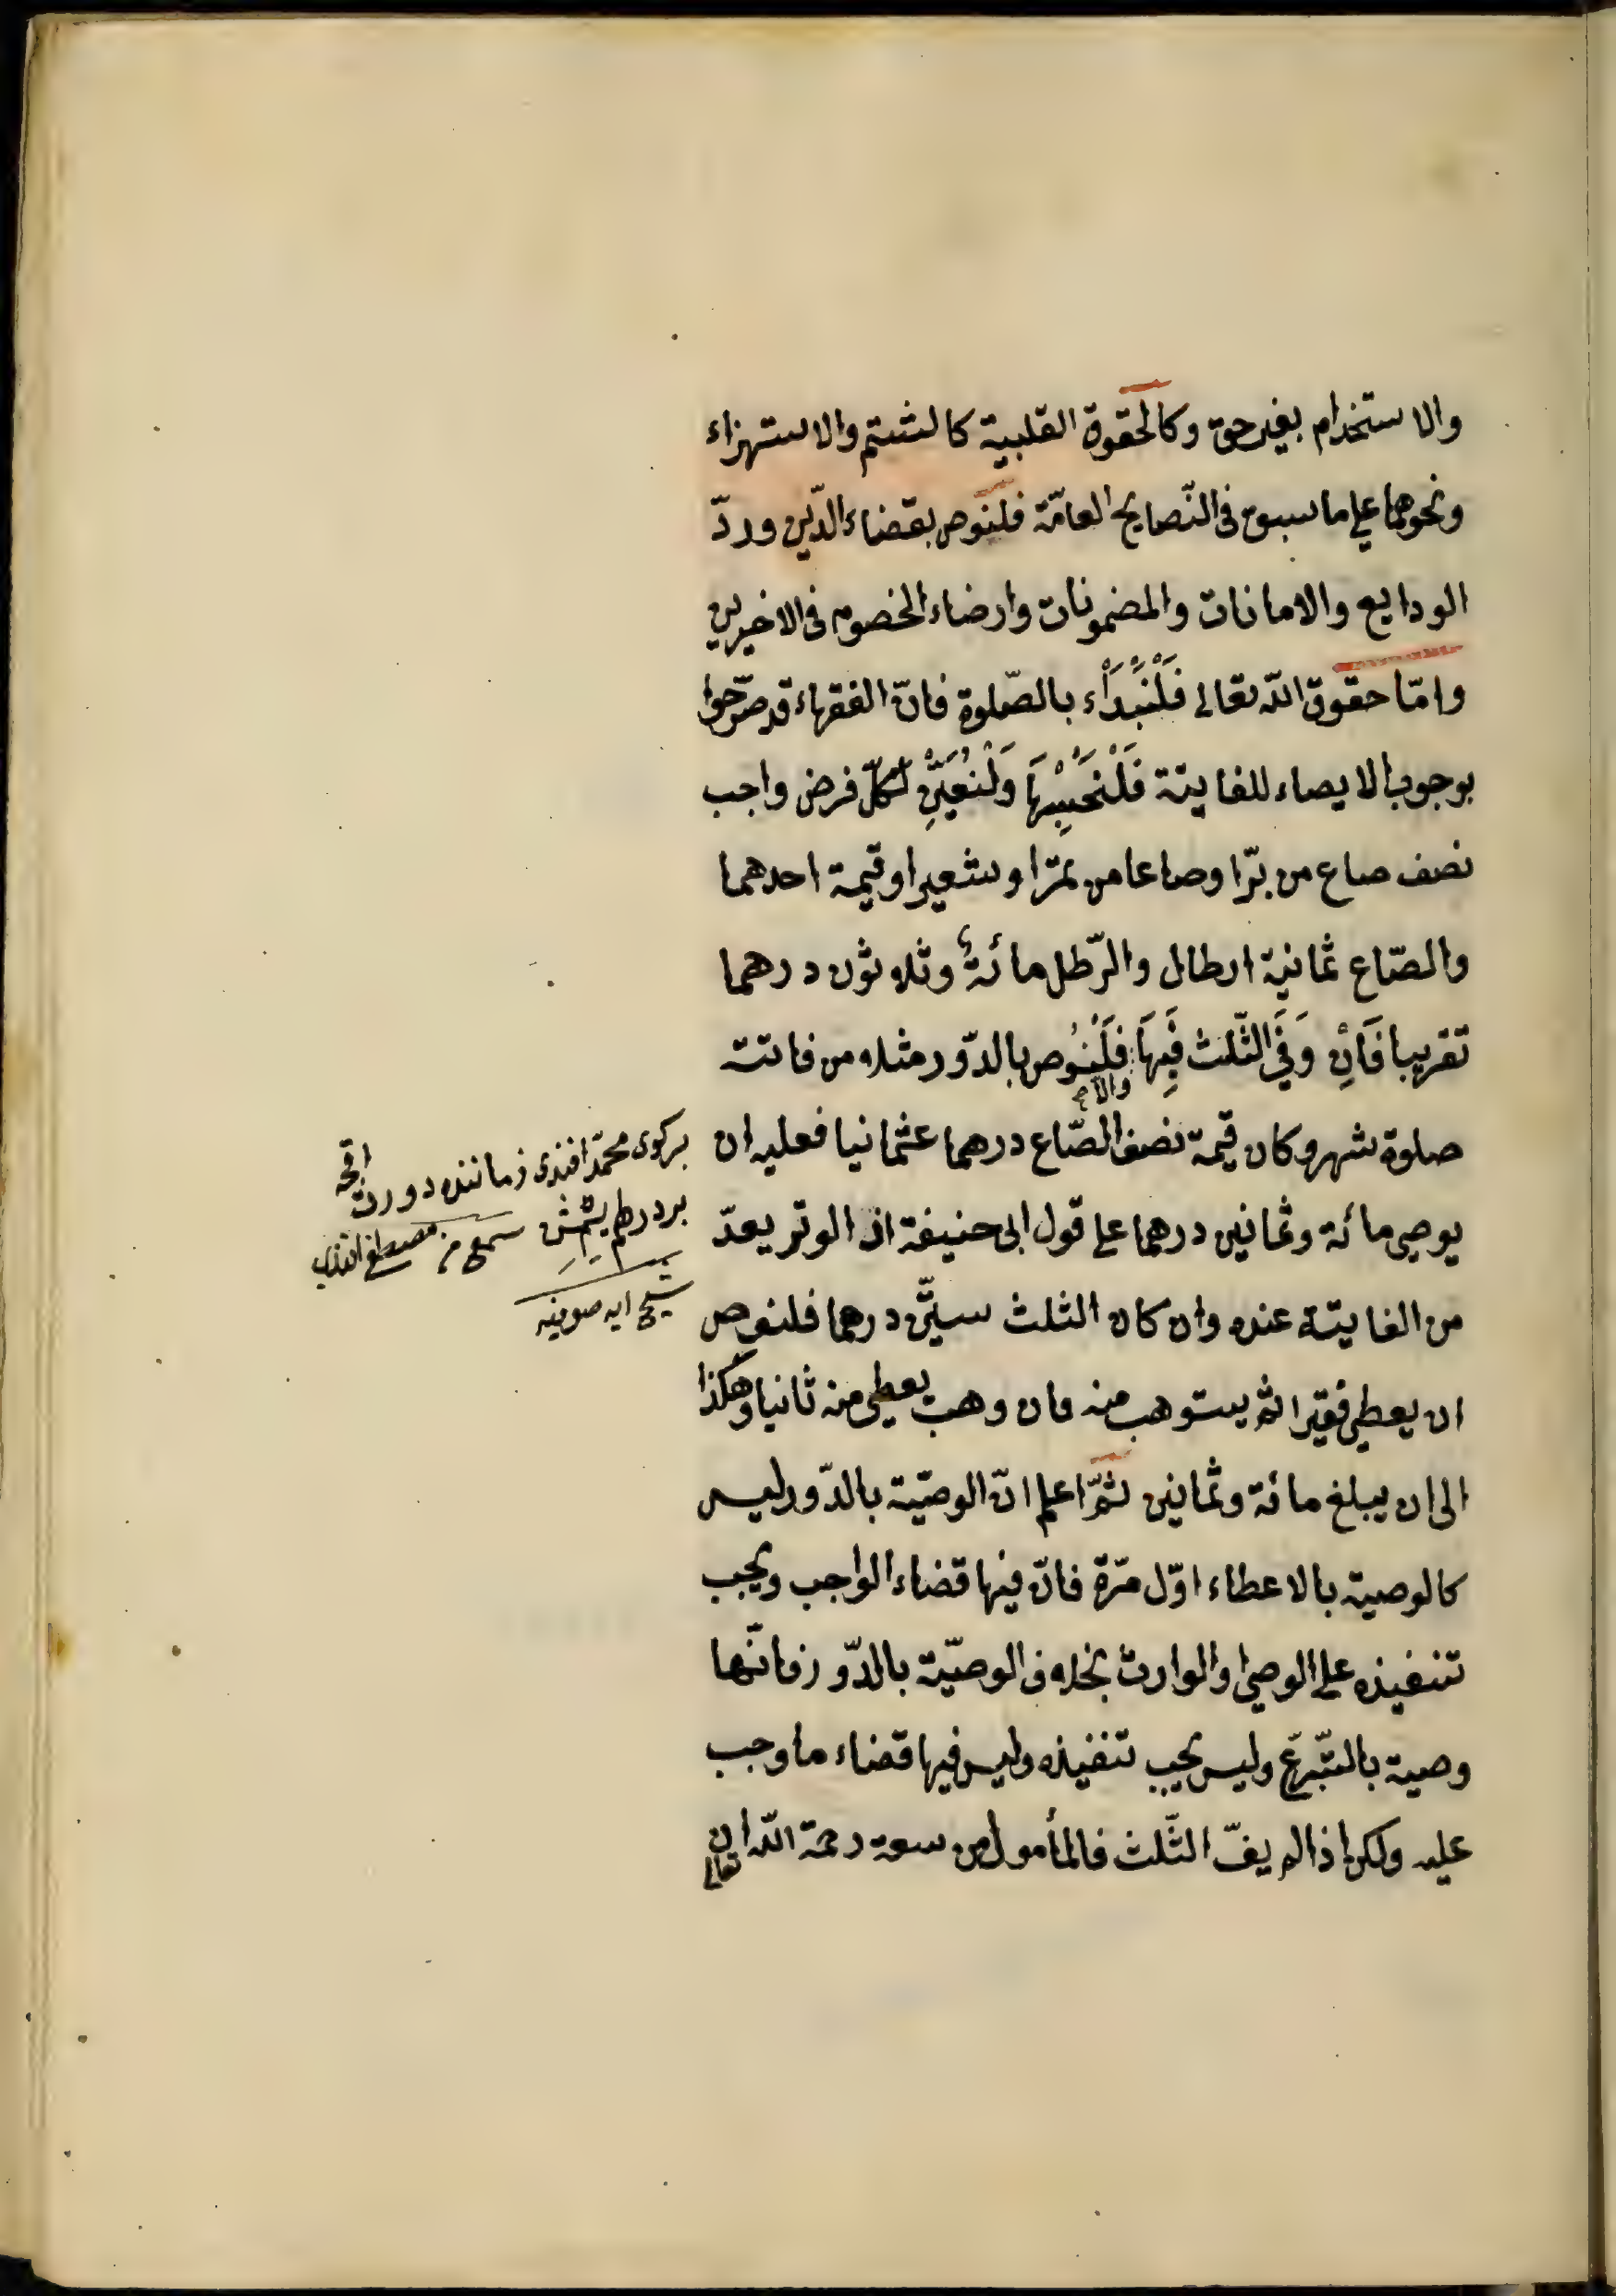 والاستخدام بغير حق وكالحقوق القلبية كالشتم والاستهزاء
ونحوهما على ما سبق فى النّصايح العامّة فلنوص بقضاء الدّين وردّ
الودايع والامانات والمضمونات وارضاء الخصوم فى الاخيرين
وامّا حقوق اللّه تعالى فَلْنَبْدَأْء بالصّلوة فانّ الفقهاء قد صرّحوا
بوجوب الايصاء للفايتة فَلْنَحْسِبْهَا وَلْنُعَيِّنْ لكلّ فرض واجب
نصف صاع من برّ او صاعا من تمر او شعير او قيمة احدهما
والصّاع ثمانية ارطال والرّطل مائة وثلاثون درهما
تقريبا فَاِنْ وَفَى الثّلث فِيهَا والّا فَلْنُوص بالدّور مثلا من فاتت
صلوة شهر وكان قيمة نصف الصّاع درهما عثمانيا فعليه ان
يوصى مائة وثمانين درهما على قول ابى حنيفة اذ الوتر يعدّ
من الفايتة عنده وان كان الثلث ستّين درهما فلنوص
ان يعطى فقيرا ثم يستوهب منه فان وهب يعطى منه ثانيا وهكذا
الى ان يبلغ مائة وثمانين ثمّ اعلم انّ الوصيّة بالدّور ليس
كالوصية بالاعطاء اوّل مرّة فانّ فيها قضاء الواجب ويجب
تنفيذه على الوصى والوارث بخلاف الوصيّة بالدّور فانّها
وصية بالتّبرّع وليس يجب تنفيذه وليس فيها قضاء ما وجب
عليه ولكن اذا لم يفّ الثّلث فالمأمول من سعة رحمة اللّه تعالى ان
بركوى محمّد افندى زماننده دورت اقچه
بر درهم ايمش سمع من مصطفى افندى
شيخ ايه صوفيه